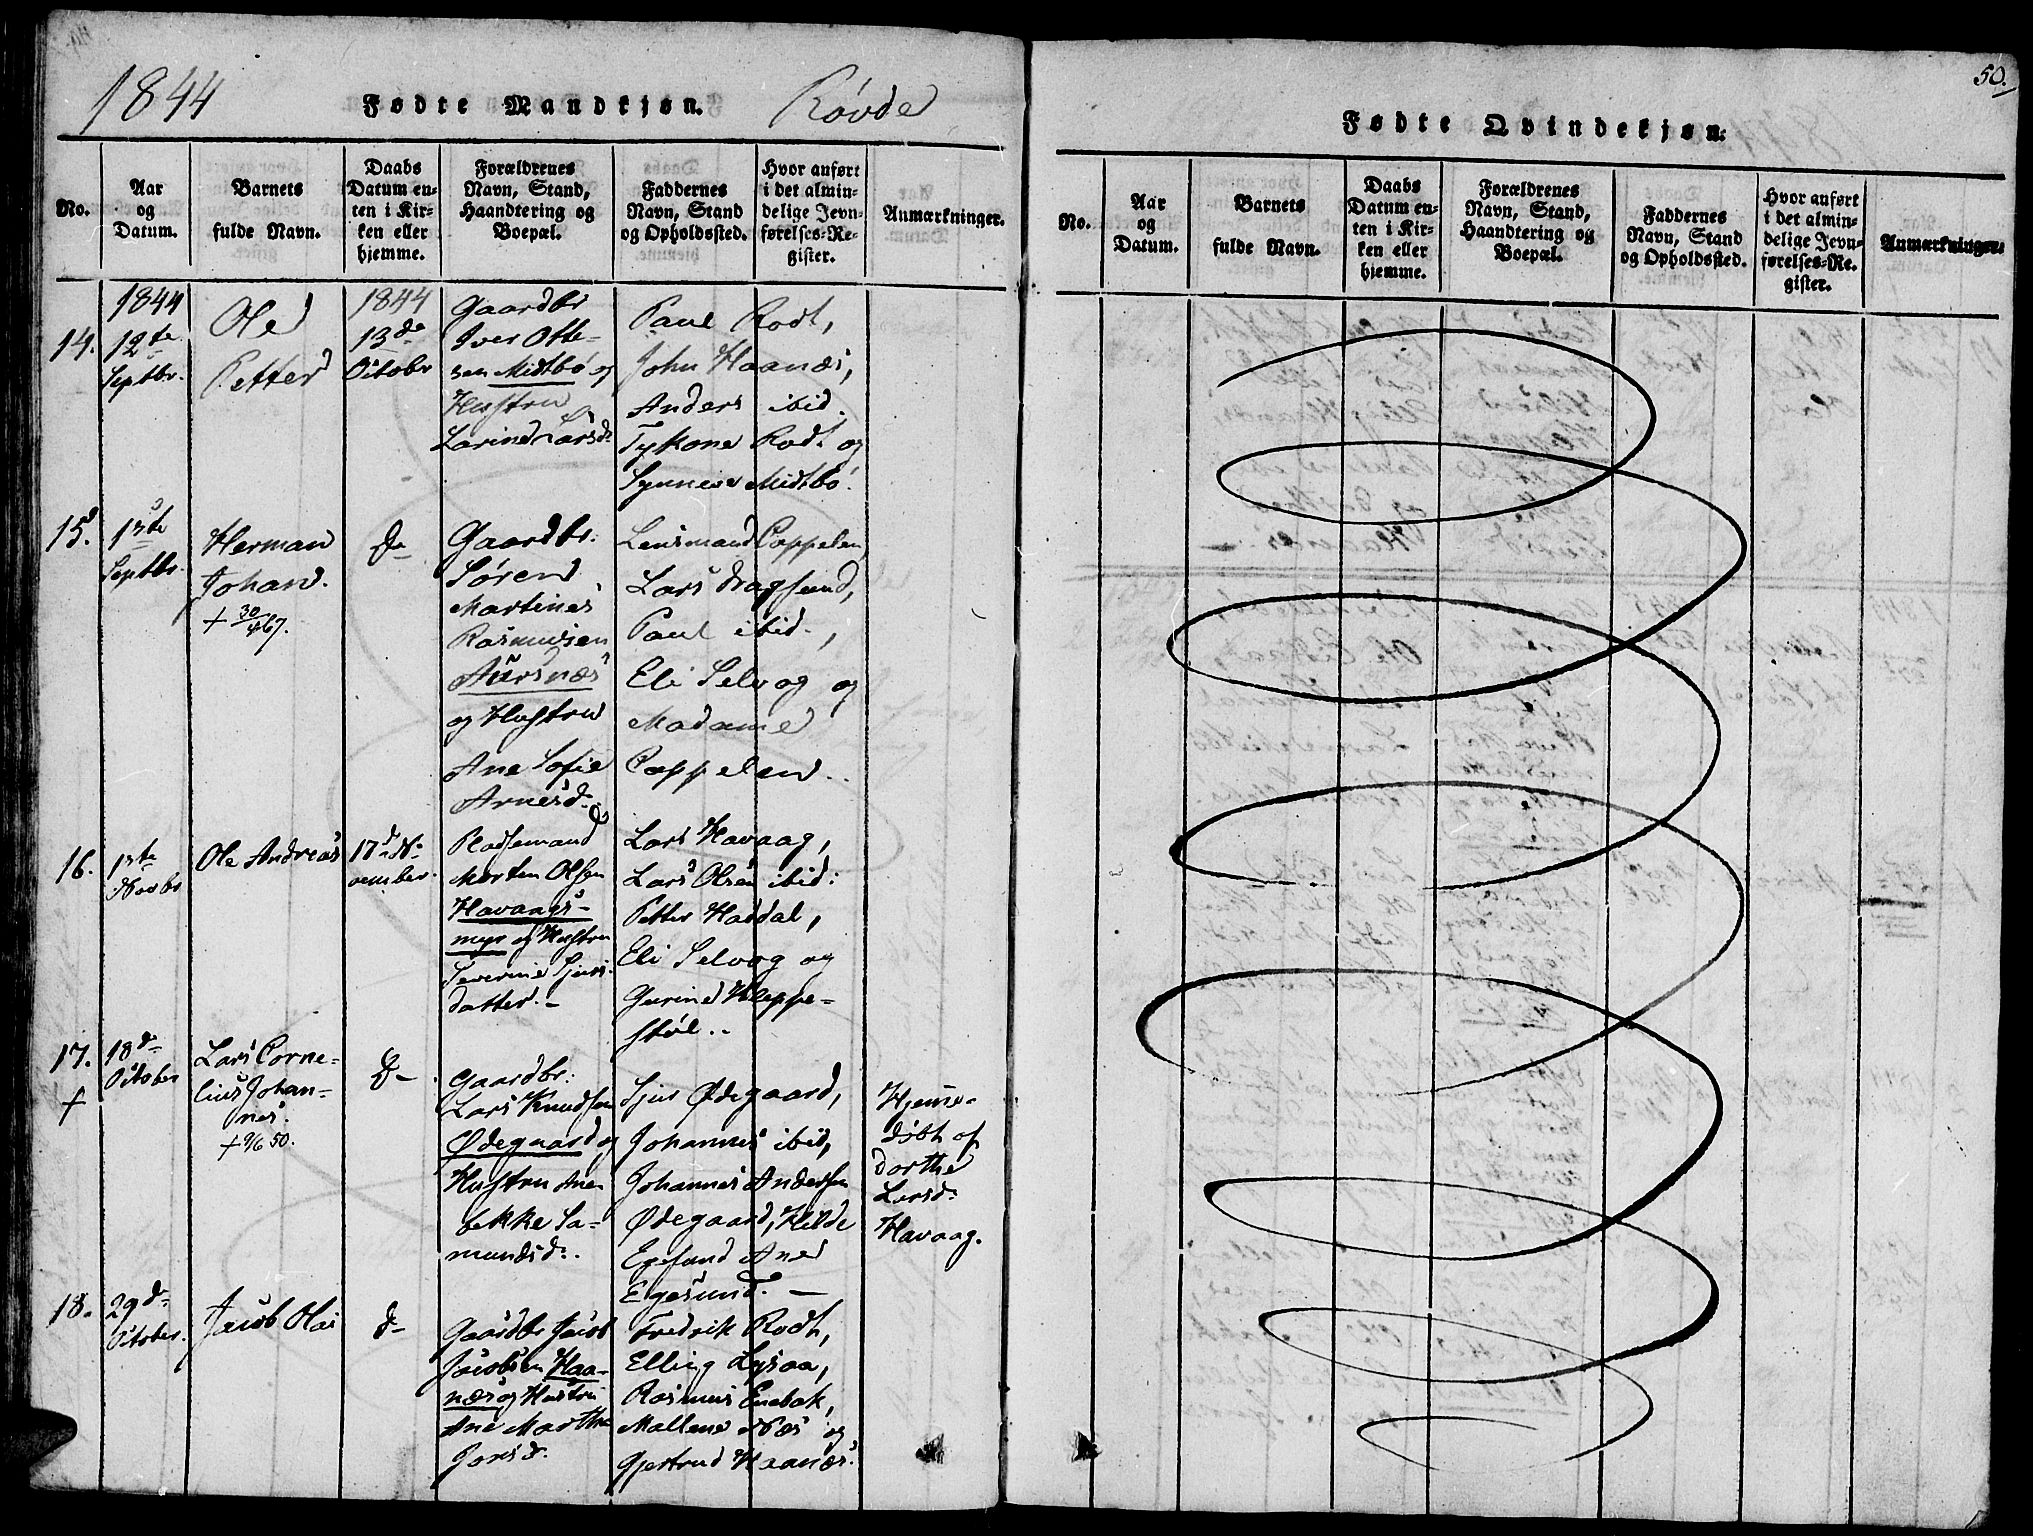 1844 Fødte Mandkjøn. Røvde
No.
Aar
og
Datum.
Barnets
fulde Navn.
Daabs
Datum en-
ten i Kir-
ken eller
hjemme.
Forældrenes
Navn, Stand,
Haandtering og
Boepæl.
Faddernes
Navn, Stand
og Opholdssted.
Hvor anført
i det almin-
delige Jevn-
førelses-Re-
gister.
Anmærkninger.
14.
1844
12te
Septbr.
Ole
Petter
1844
13de
October
Gaardbr
Iver Otte-
sen Midtbø og
Hustru
Larine Larsd.
Paul Rodt,
John Haanæs,
Anders ibid.
Rodt og
Synneve Midtbø.
15.
13te
Septbr.
Herman
Johan.
+ 30/4 67.
do
Gaardbr.
Søren
Martines
Rasmusen
Aursnæs
og Hustru
Ane Sofie
Arnesd.
Lensmand Coppelen
Lars Dragsund,
Paul ibid.,
Eli Selvog og
Madame
Coppelen.
16.
13te
Novbr
Ole Andreas
17de No-
vember.
Pladsemand
Morten Olsen
Havaags-
myr og Hustru
Severine Sjurs-
datter.
Lars Havaag,
Lars Olsen ibid:
Petter Haddal,
Eli Selvog og
Gurine Kleppe-
støl..
17.
+
18de
October
Lars Corne-
lius Johan-
nes.
+ 9/6 50.
do
Gaardbr:
Lars Knudsen
Ødegaard og
Hustru Ane
bekke Sa-
mundsd..
Sjur Ødegaard,
Johannes ibid,
Johannes Andersen
Ødegaard, Hilde
Egesund Ane
Egesund.
Hjemme-
døbt af
Dorthe
Larsd.
Havaag.
18.
29de
October.
Jacob Olai
do
Gaardbr Jacob
Jacobsen Haa-
næs og Hustru
Ane Marthe
Jonsd.
Fredrik Rodt,
Elling Lysaa,
Rasmus Enebak,
Mallene Næs og
Gjertrud Haanæs.
50.
Fødte Qvindekjøn.
No.
Aar
og
Datum.
Barnets
fulde Navn.
Daabs
Datum en-
ten i Kir-
ken eller
hjemme.
Forældrenes
Navn, Stand,
Haandtering og
Boepæl.
Faddernes
Navn, Stand
og Opholdssted.
Hvor anført
i det almin-
delige Jevn-
førelses-Re-
gister.
Anmærkninger.